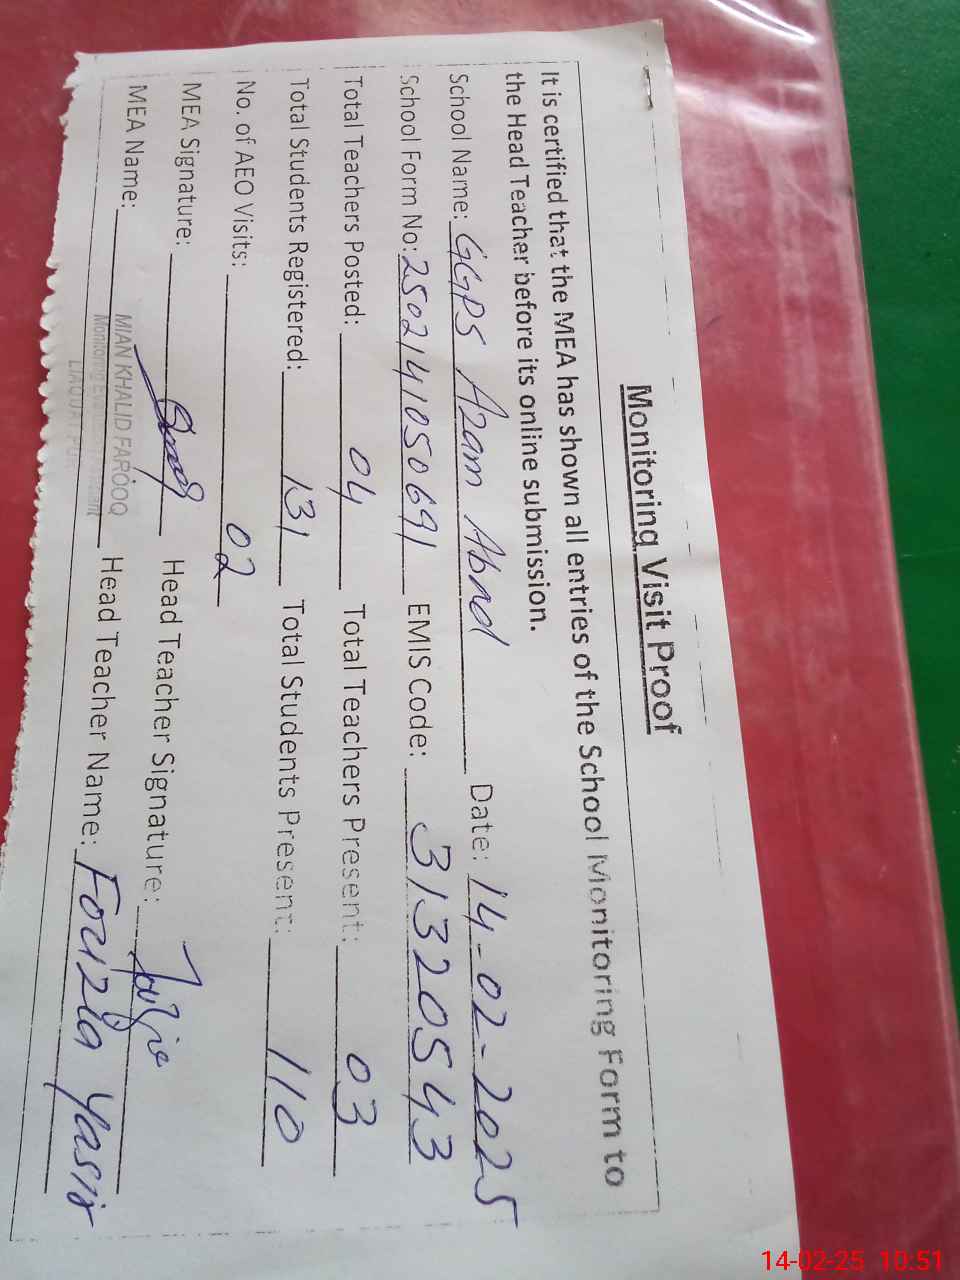 Monitoring Visit Proof
It is certified that the MEA has shown all entries of the School Monitoring Form to
the Head Teacher before its online submission.
School Name: GGPS Azam Abad Date: 14-02-2025
School Form No: 2502141050691 EMIS Code: 31320543
Total Teachers Posted: 04 Total Teachers Present: 03
Total Students Registered: 131 Total Students Present: 110
No. of AEO Visits: 02
MEA Signature: Head Teacher Signature:
MEA Name: MIAN KHALID FAROOQ Head Teacher Name: Fouzia Yasir
LIAQUAT PUR
14-02-25 10:51